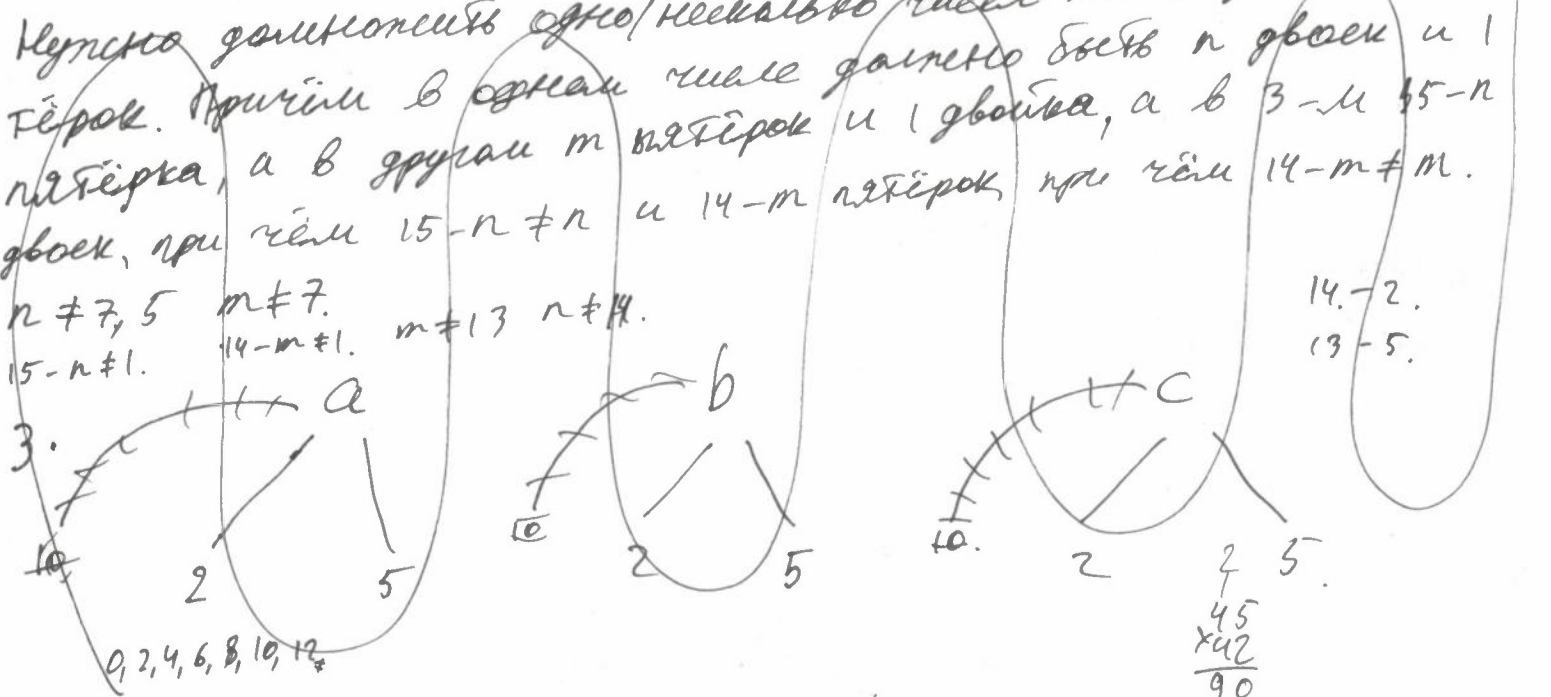 Нужно домножить одно/несколько чисел
тёрок. Причём в одном числе должно быть n двоек и 1
пятёрка, а в другом m пятёрок и 1 двойка, а в 3-м 15-n
двоек, при чём 15-n ≠ n и 14-m пятёрок, при чём 14-m ≠ m.
n ≠ 7,5 m ≠ 7.
15-n ≠ 1. 14-m ≠ 1. m ≠ 13 n ≠ 14.
14.-2.
13-5.
3.
a b c
10 10 10.
2 5 2 5 2 2 5.
0, 2, 4, 6, 8, 10, 12
45
×42
90